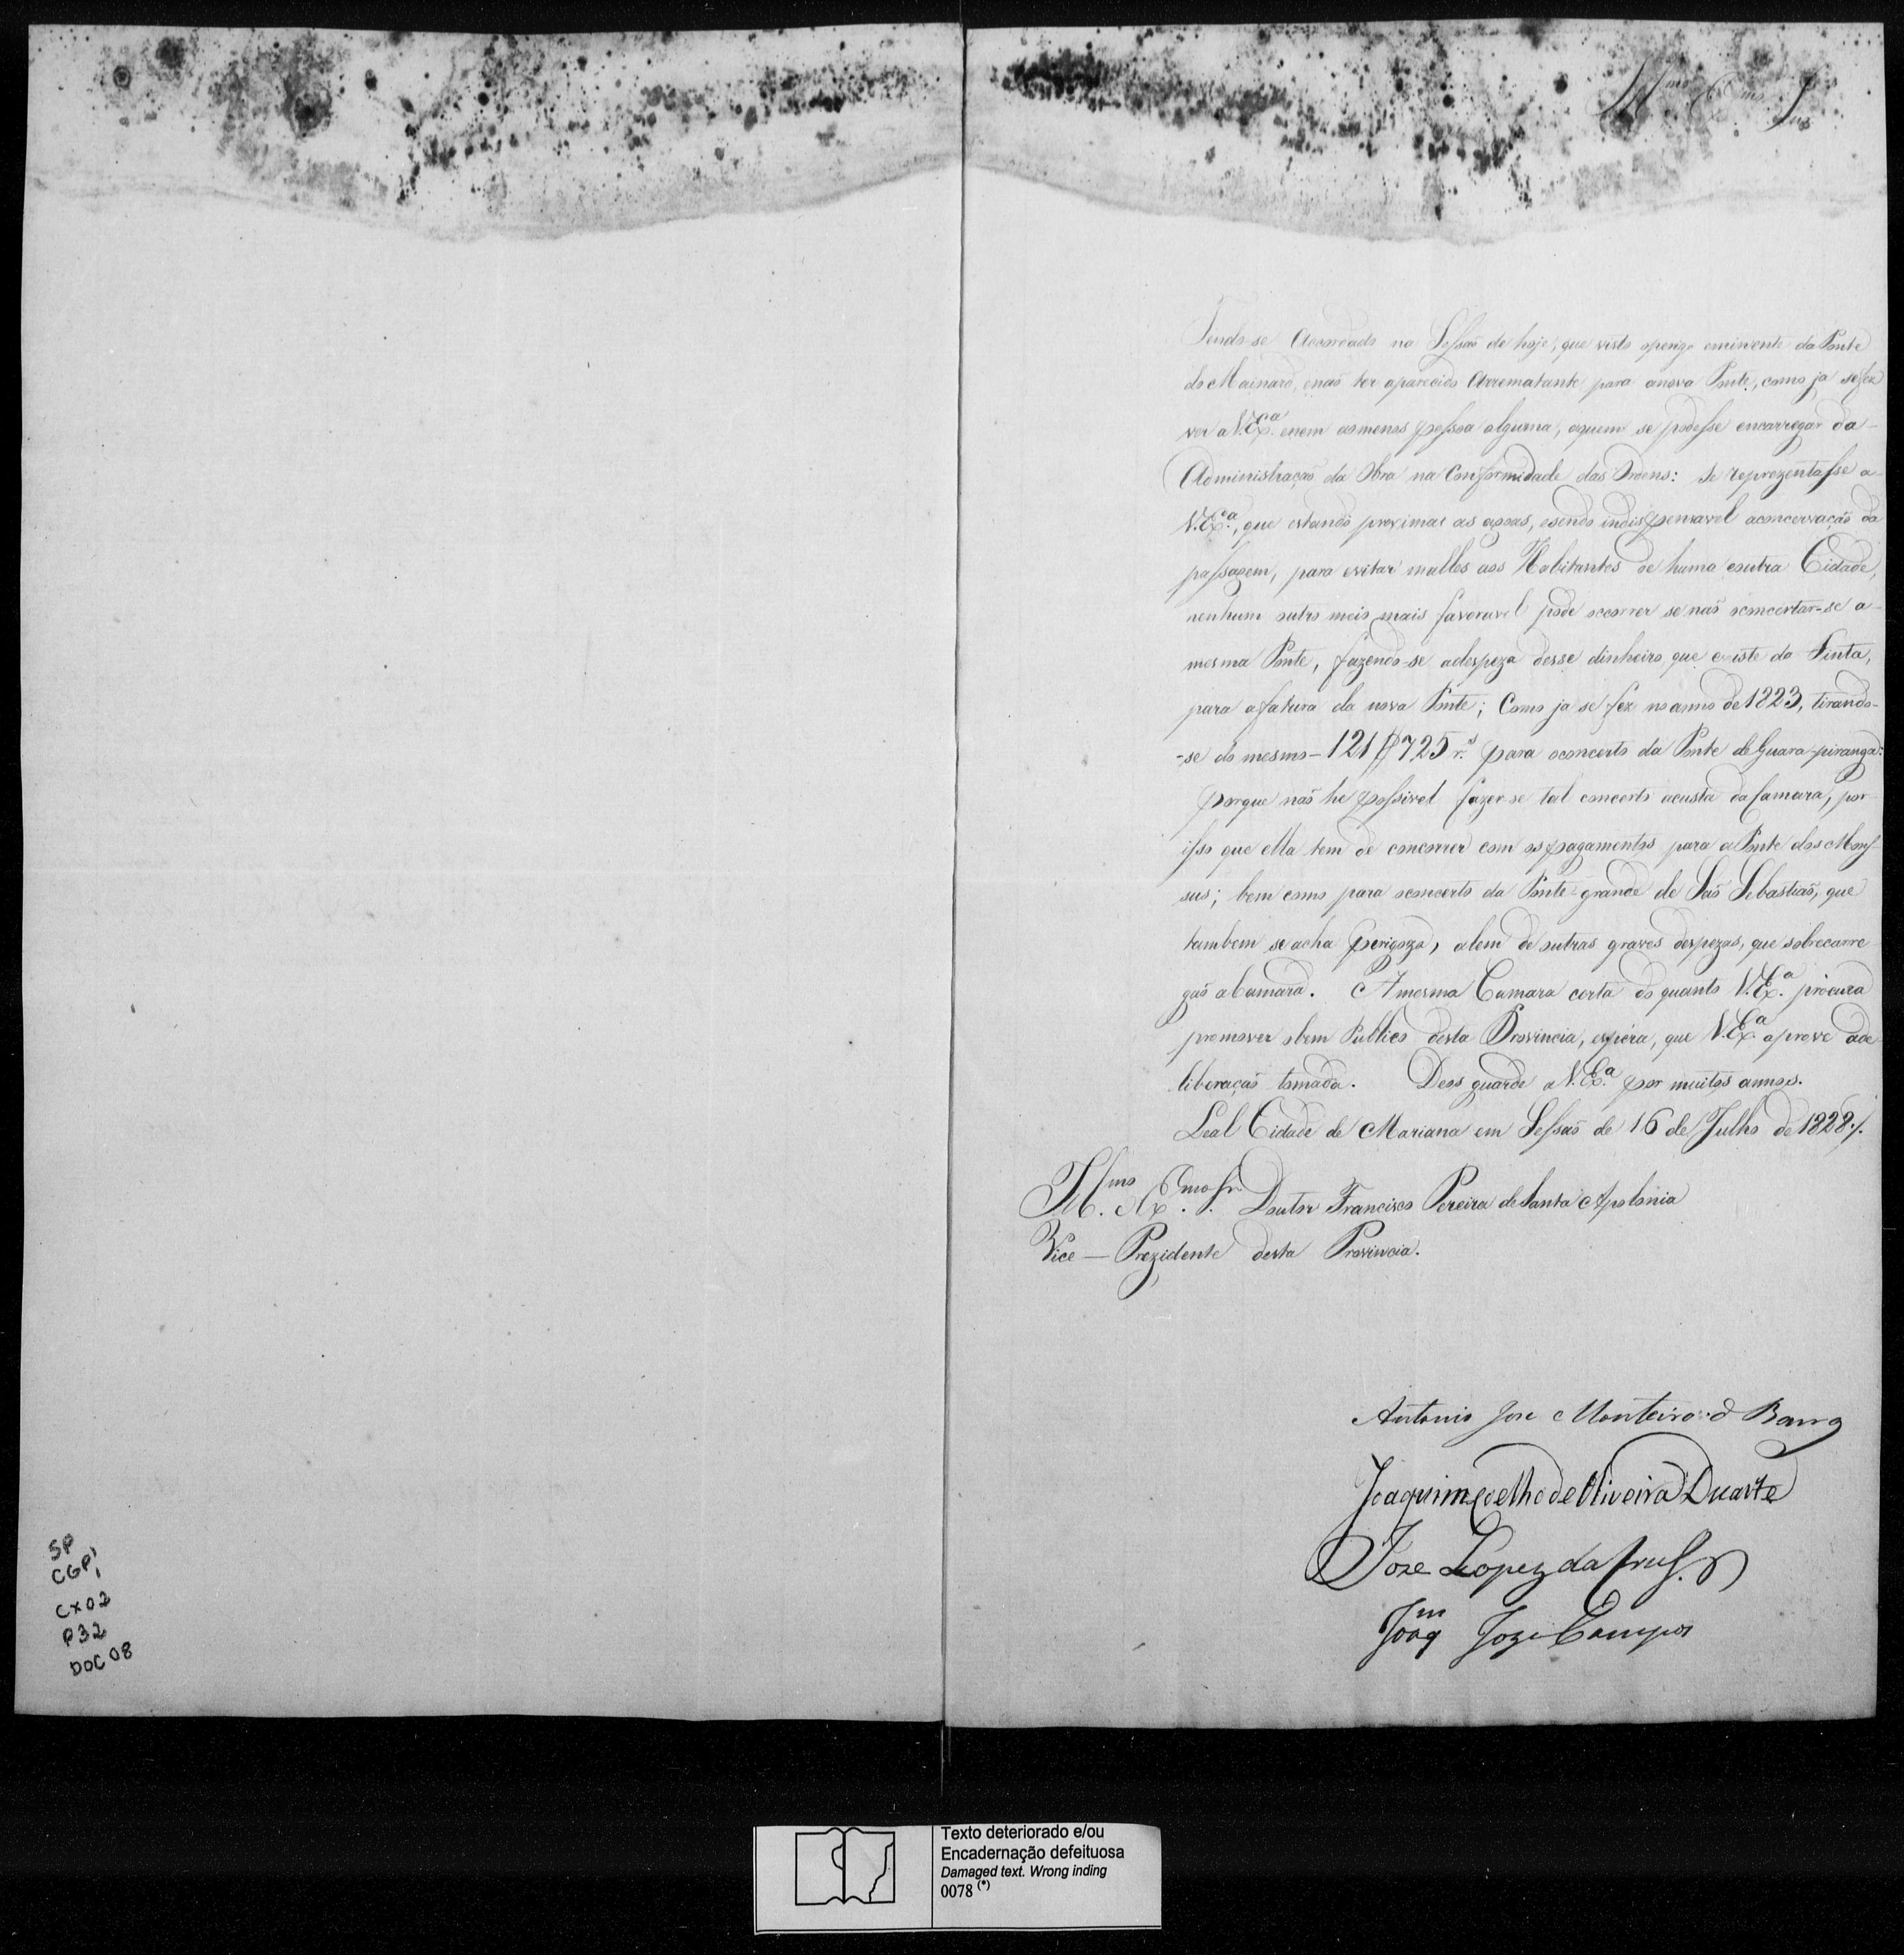 Illmo. e Exmo. Snr.
Tendo-se Acordado na Sessaõ de hoje, que visto operigo eminente da Ponte
do Mainard, enaõ ter aparecido Arrematante para anova Ponte, como ja se fez
ver a V. Exa. enem aomenos pessoa alguma, aquem se podesse encarregar da
Administraçaõ da Obra na Conformidade das Ordens: se reprezentasse a
V. Exa., que estando proximas as agoas, esendo indispensavel aconcervaçaõ da
passagem, para evitar malles aos Habitantes de huma eoutra Cidade,
nenhum outro meio mais favoravel pode occorrer se naõ oconcertar-se a
mesma Ponte, fazendo-se adespeza desse dinheiro que existe da Finta,
para afatura da nova Ponte; Como ja se fez no anno de 1823, tirando-
-se do mesmo - 121$725 rs. para oconcerto da Ponte de Guara-piranga:
porque naõ he possivel fazer-se tal concerto acusta da Camara, por
isso que ella tem de concorrer com os pagamentos para a Ponte dos Mon-
sus; bem como para oconcerto da Ponte grande de Saõ Sebastiaõ, que
tambem se acha perigoza, alem de outras graves despezas, que sobrecarre
gaõ aCamara. A mesma Camara certa do quanto V. Exa. procura
promover obem Publico desta Provincia, espéra, que V. Exa. aprove ade
liberaçaõ tomada. Deos guarde a V. Exa. por muitos annos.
Leal Cidade de Mariana em Sessaõ de 16 de Julho de 1828./.
Illmo. e Exmo. Sr. Doutor Francisco Pereira de Santa Apolonia
Vice - Prezidente desta Provincia.
Antonio Jose Monteiro d Barros
Joaquim Coelho de Oliveira Duarte
Joze Lopez da Cruz
Joaqm Joze Campos
SP
CGP1
CX02
P32
DOC 08
Texto deteriorado e/ou
Encadernação defeituosa
Damaged text. Wrong inding
0078 (*)